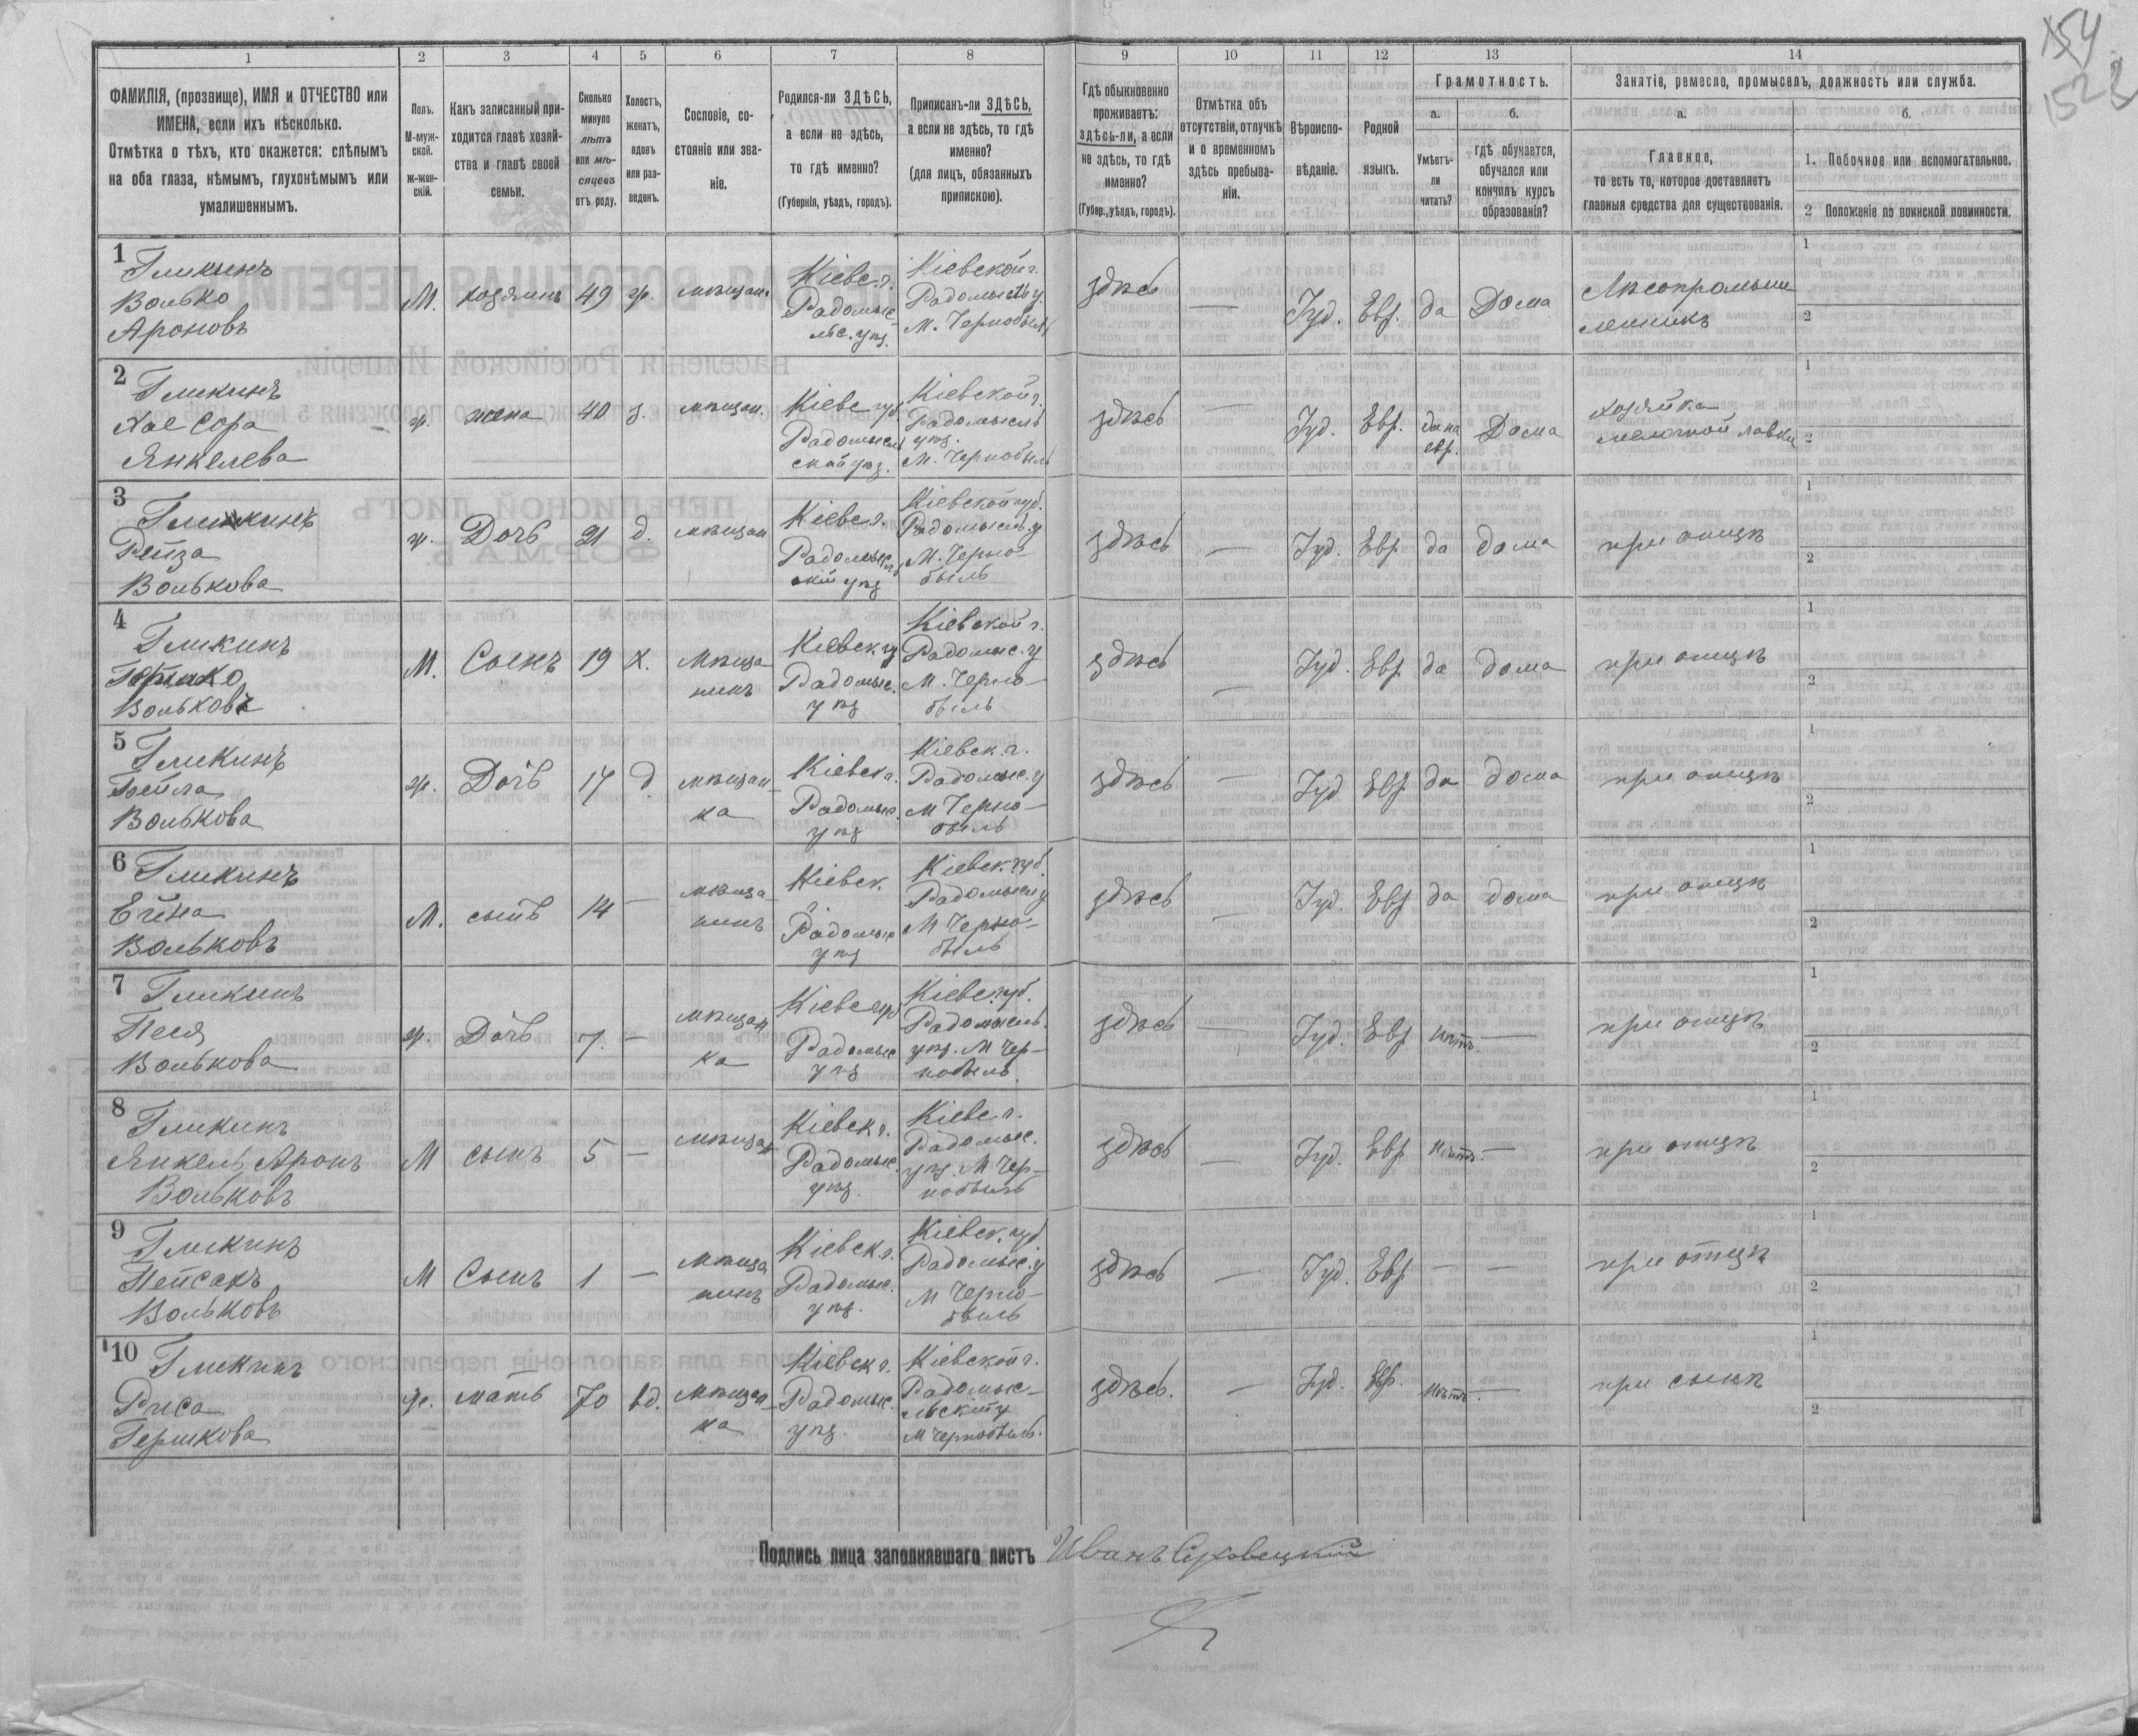 154
1523
1 2 3 4 5 6 7 8 9 10 11 12 13 14
ФАМИЛІЯ, (прозвище), ИМЯ и ОТЧЕСТВО или
ИМЕНА, если ихъ нѣсколько.
Отмѣтка о тѣхъ, кто окажется: слѣпымъ
на оба глаза, нѣмымъ, глухонѣмымъ или
умалишеннымъ.
Полъ.
М-муж-
ской.
ж-жен-
скій.
Какъ записанный при-
ходится главѣ хозяй-
ства и главѣ своей
семьи.
Сколько
минуло
лѣтъ
или мѣ-
сяцевъ
отъ роду.
Холостъ,
женатъ,
вдовъ
или раз-
веденъ.
Сословіе, со-
стояніе или зва-
ніе.
Родился-ли ЗДѢСЬ,
а если не здѣсь,
то гдѣ именно?
(Губернія, уѣздъ, городъ).
Приписанъ-ли ЗДѢСЬ,
а если не здѣсь, то гдѣ
именно?
(для лицъ, обязанныхъ
припискою).
Гдѣ обыкновенно
проживаетъ:
здѣсь-ли, а если
не здѣсь, то гдѣ
именно?
(Губер., уѣздъ, городъ).
Отмѣтка объ
отсутствіи, отлучкѣ
и о временномъ
здѣсь пребыва-
ніи.
Вѣроиспо-
вѣданіе.
Родной
языкъ.
Грамотность.
а.
Умѣетъ-
ли
читать?
б.
гдѣ обучается,
обучался или
кончилъ курсъ
образованія?
Занятія, ремесло, промыселъ, должность или служба.
а.
Главное,
то есть то, которое доставляетъ
главныя средства для существованія.
б.
1. Побочное или вспомогательное.
2 Положеніе по воинской повинности.
1
Гликинъ
Волько
Ароновъ
М. хозяинъ 49 ж. мѣщан.
Кіевс. г.
Радомыс
льс. уѣз.
Кіевской г.
Радомысль у.
М. Чернобыль
здѣсь — Іуд. Евр. да Дома
Лѣсопромыш
ленникъ
1
2
2
Гликинъ
Хае Сора
Янкелева
ж. жена 40 з. мѣщан.
Кіевс губ
Радомысль
ской уѣз.
Кіевской г.
Радомысль
уѣз.
М. Чернобыль
здѣсь — Іуд. Евр. да на
евр. Дома
хозяйка
мелочной лавки
1
2
3
Гликинъ
Рейза
Волькова
ж. Дочь 21 д. мѣщан
Кіевс г.
Радомысль
скій уѣз
Кіевской губ.
Радомысль у
М. Черно-
быль
здѣсь — Іуд. Евр да дома при отцѣ
1
2
4
Гликинъ
Гершко
Вольковъ
М. Сынъ 19 х. Мѣща
нинъ
Кіевск. гу
Радомыс.
уѣз
Кіевской г.
Радомыс. у
М. Черно-
быль
здѣсь — Іуд. Евр да дома при отцѣ
1
2
5
Гликинъ
Бейла
Волькова
ж. Дочь 17 д мѣщан
ка
Кіевск г.
Радомыс.
уѣз
Кіевск. г.
Радомыс. у
М Черно-
быль
здѣсь — Іуд Евр да дома при отцѣ
1
2
6
Гликинъ
Ейна
Вольковъ
М. сынъ 14 — мѣща
нинъ
Кіевск.
г.
Радомыс
уѣз
Кіевск. губ.
Радомысл у
М Черно-
быль
здѣсь — Іуд. Евр да дома при отцѣ
1
2
7
Гликинъ
Песя
Волькова
ж. Дочь 7. — мѣщан
ка
Кіевс губ
Радомыс
уѣз
Кіевс. губ.
Радомысль.
уѣз. М Чер-
нобыль.
здѣсь — Іуд. Евр нѣтъ. — при отцѣ
1
2
8
Гликинъ
Янкель Аронъ
Вольковъ
М сынъ 5 — мѣщан
Кіевск г.
Радомыс.
уѣз.
Кіевс. г.
Радомыс.
уѣз. М Чер-
нобыль
здѣсь — Іуд. Евр нѣтъ. — при отцѣ
1
2
9
Гликинъ
Пейсахъ
Вольковъ
М Сынъ 1 — мѣща
нинъ
Кіевск г.
Радомыс.
уѣз.
Кіевск. губ
Радомыс. у
М Черно-
быль
здѣсь — Іуд. Евр — — при отцѣ
1
2
10
Гликинъ
Риса
Гершкова
ж. мать 70 вд. мѣщан
ка
Кіевск г.
Радомыс.
уѣз.
Кіевской г.
Радомыс-
льск.
М Чернобыль.
здѣсь. — Іуд. Евр. нѣтъ. — при сынѣ
1
2
Подпись лица заполнявшаго листъ Иванъ